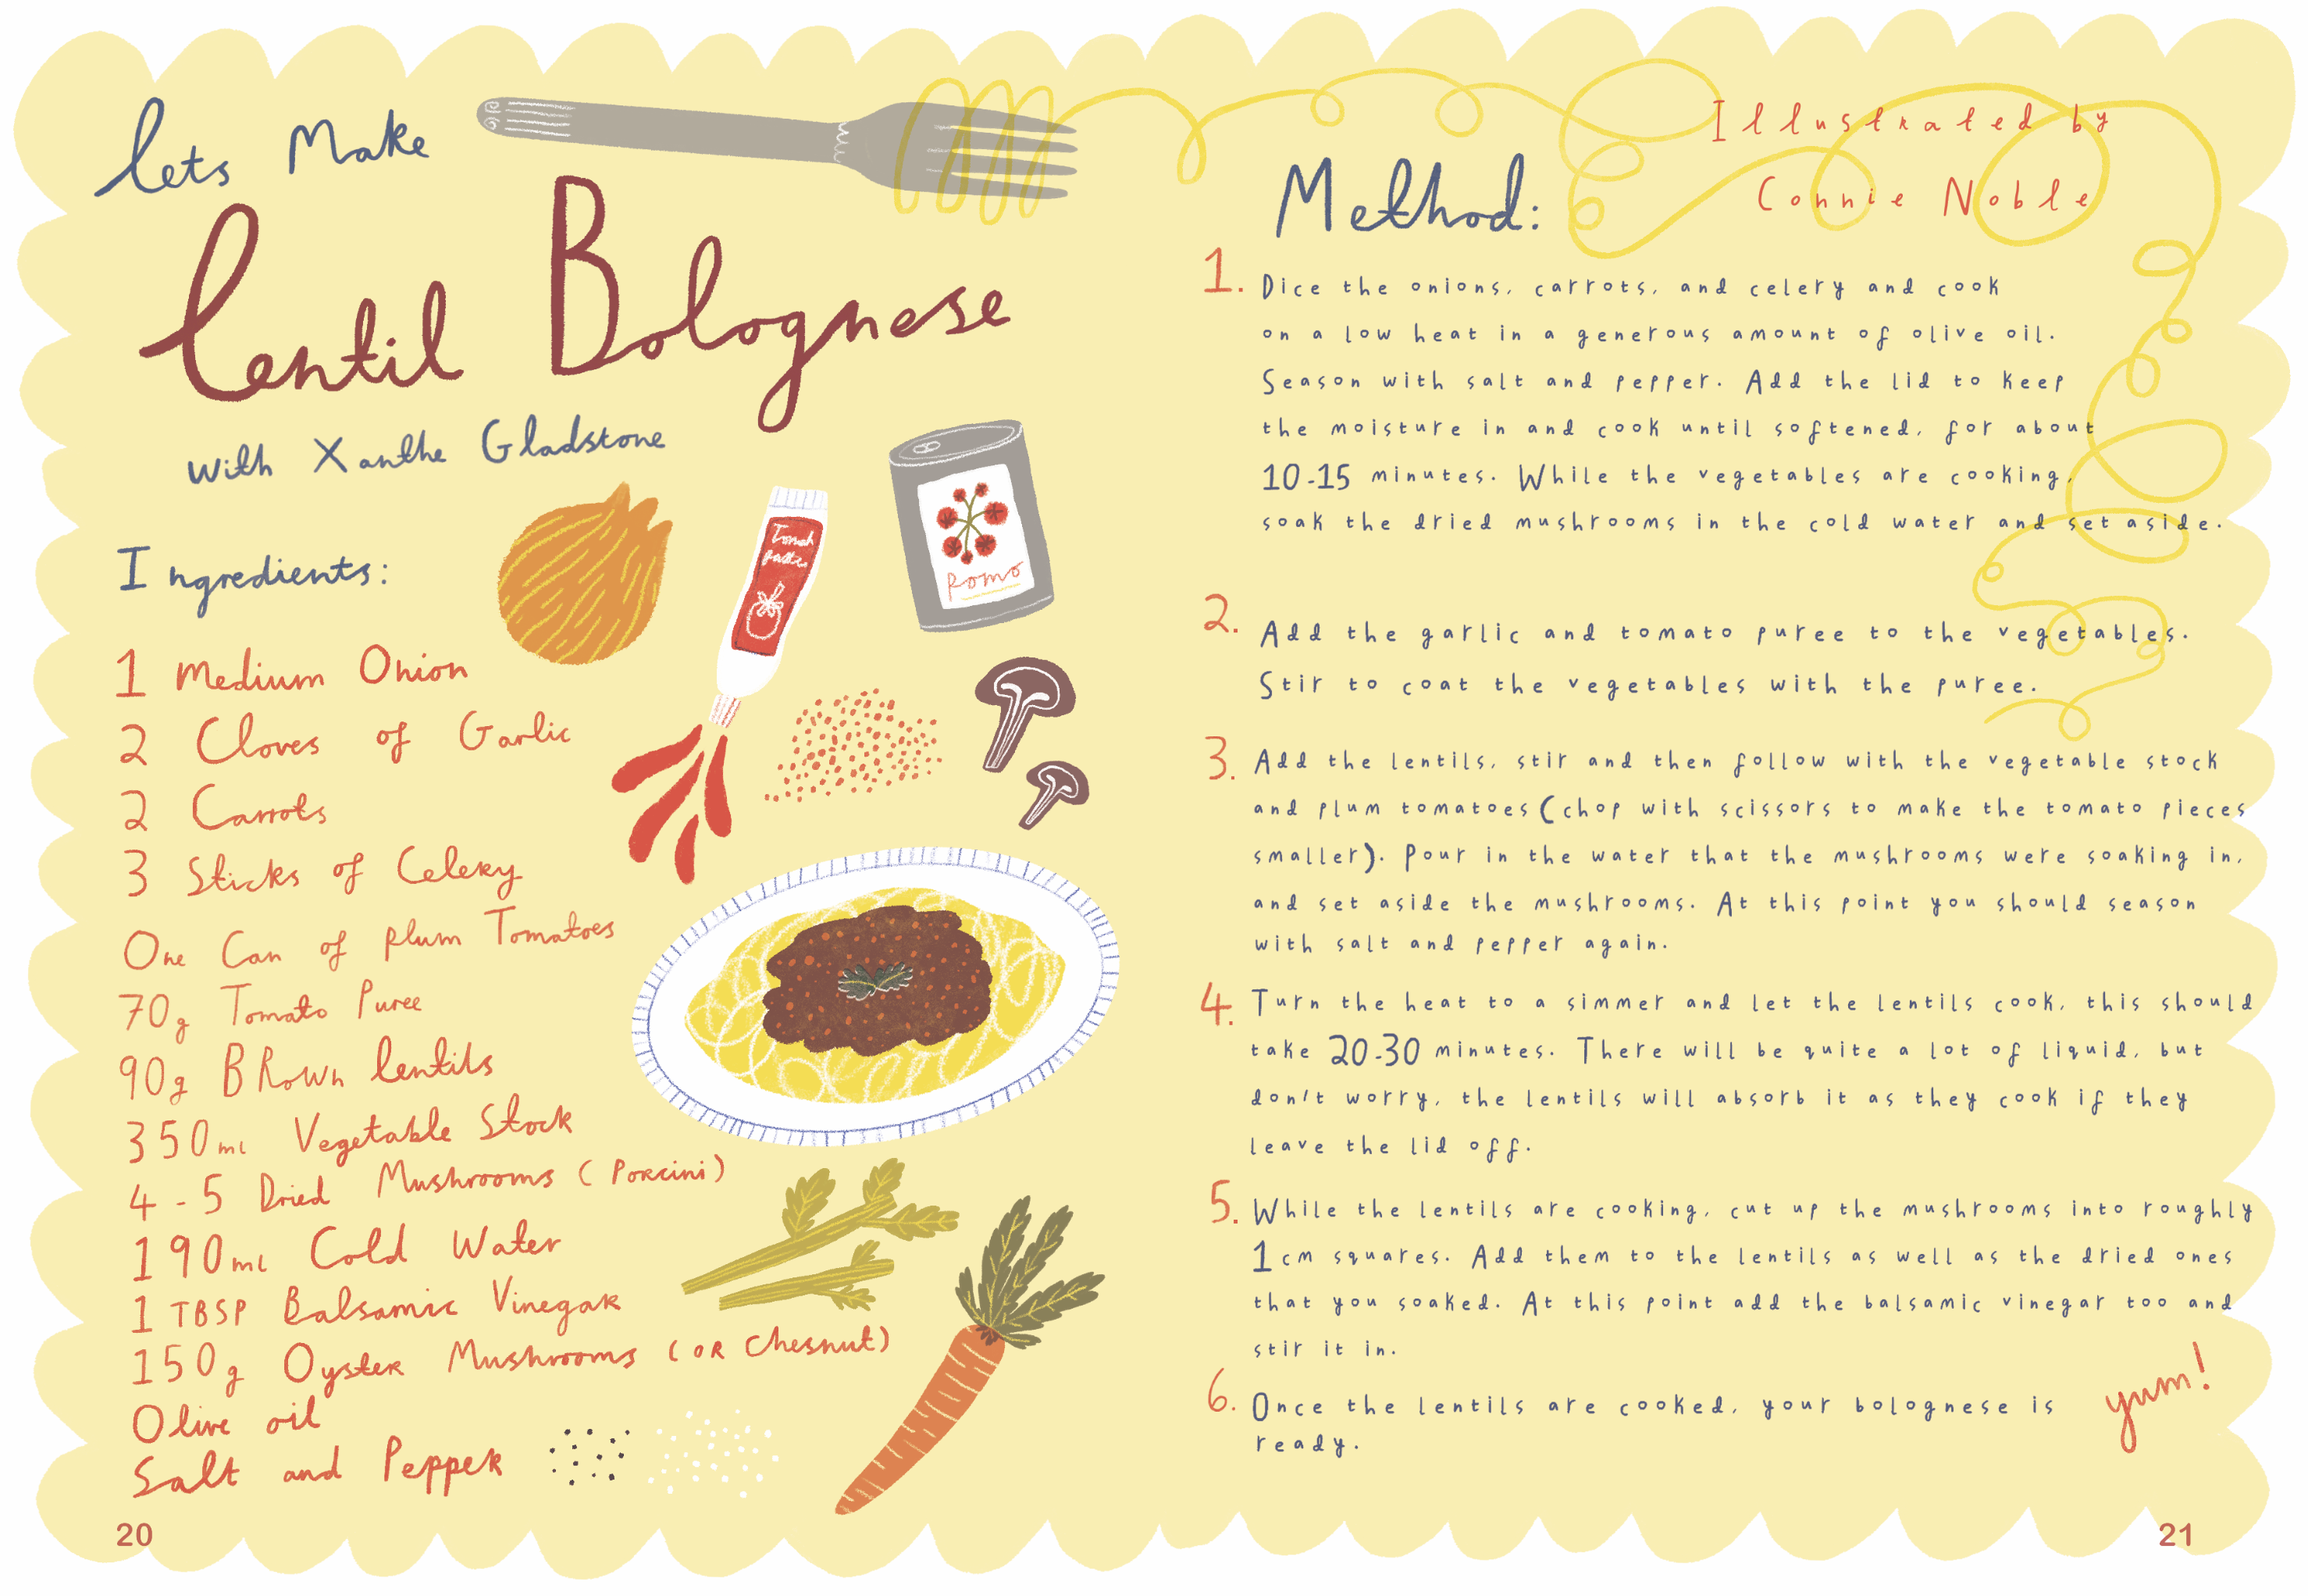 lets Make
Lentil Bolognese
with Xanthe Gladstone
Ingredients:
1 Medium Onion
2 Cloves of Garlic
2 Carrots
3 Sticks of Celery
One Can of Plum Tomatoes
70g Tomato Puree
90g Brown Lentils
350ml Vegetable Stock
4-5 Dried Mushrooms (Porcini)
190ml Cold Water
1 TBSP Balsamic Vinegar
150g Oyster Mushrooms (OR Chesnut)
Olive oil
Salt and Pepper
Tomato
paste
Pomo
20
Illustrated by
Connie Noble
Method:
1. Dice the onions, carrots, and celery and cook
on a low heat in a generous amount of olive oil.
Season with salt and pepper. Add the lid to keep
the moisture in and cook until softened, for about
10-15 minutes. While the vegetables are cooking,
soak the dried mushrooms in the cold water and set aside.
2. Add the garlic and tomato puree to the vegetables.
Stir to coat the vegetables with the puree.
3. Add the lentils, stir and then follow with the vegetable stock
and plum tomatoes (chop with scissors to make the tomato pieces
smaller). Pour in the water that the mushrooms were soaking in,
and set aside the mushrooms. At this point you should season
with salt and pepper again.
4. Turn the heat to a simmer and let the lentils cook, this should
take 20-30 minutes. There will be quite a lot of liquid, but
don't worry, the lentils will absorb it as they cook if they
leave the lid off.
5. While the lentils are cooking, cut up the mushrooms into roughly
1cm squares. Add them to the lentils as well as the dried ones
that you soaked. At this point add the balsamic vinegar too and
stir it in.
6. Once the lentils are cooked, your bolognese is
ready.
yum!
21